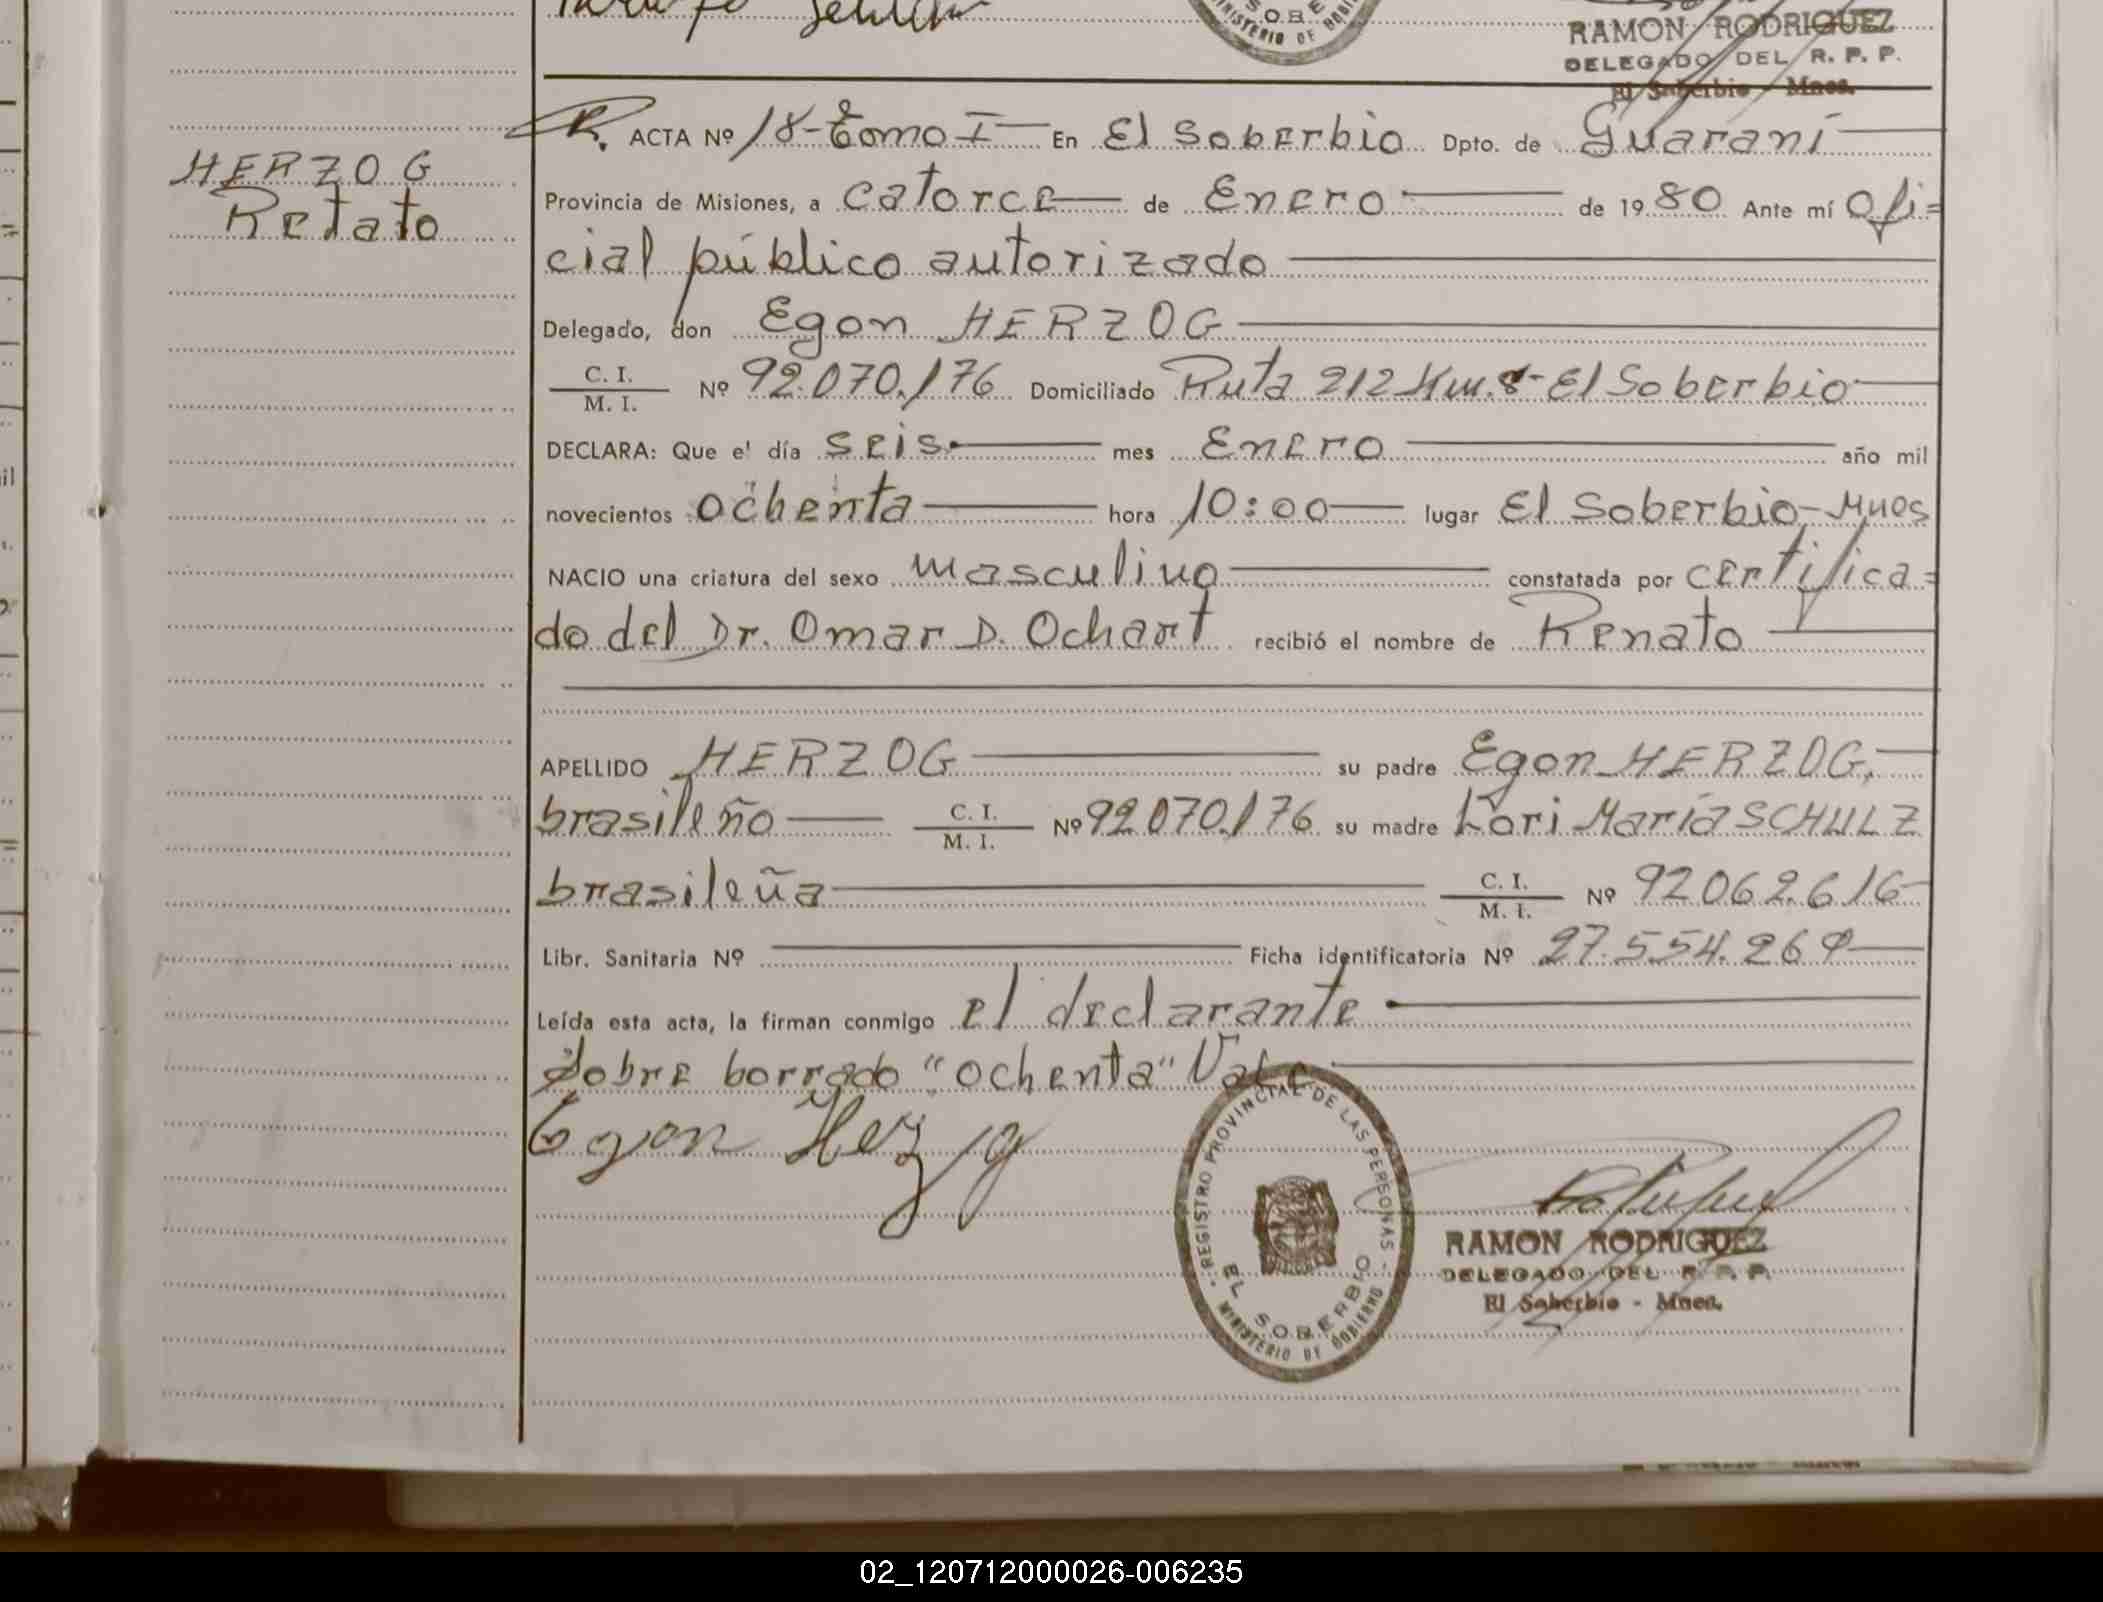 RAMON RODRIGUEZ
DELEGADO DEL R. P. P.
El Soberbio - Mnes.
HERZOG
Retato
ACTA Nº 18-Tomo I En El Soberbio Dpto. de Guaraní
Provincia de Misiones, a catorce de Enero de 1980 Ante mí Ofi=
cial público autorizado
Delegado, don Egon HERZOG
C. I.
M. I. Nº 92.070.176 Domiciliado Ruta 212 Km. 8-El Soberbio
DECLARA: Que e' día seis mes Enero año mil
novecientos ochenta hora 10:00 lugar El Soberbio-Mnes
NACIO una criatura del sexo masculino constatada por certifica=
do del Dr. Omar D. Ochart recibió el nombre de Renato
APELLIDO HERZOG su padre Egon HERZOG,
brasileño C. I.
M. I. Nº 92.070.176 su madre Lori María SCHULZ
brasileña C. I.
M. I. Nº 92.062.616
Libr. Sanitaria Nº Ficha identificatoria Nº 27.554.269
Leída esta acta, la firman conmigo el declarante
Sobre borrado "ochenta" Vale
Egon Herzog
REGISTRO PROVINCIAL DE LAS PERSONAS
EL SOBERBIO
MINISTERIO DE GOBIERNO
RAMON RODRIGUEZ
DELEGADO DEL R. P. P.
El Soberbio - Mnes.
02_120712000026-006235